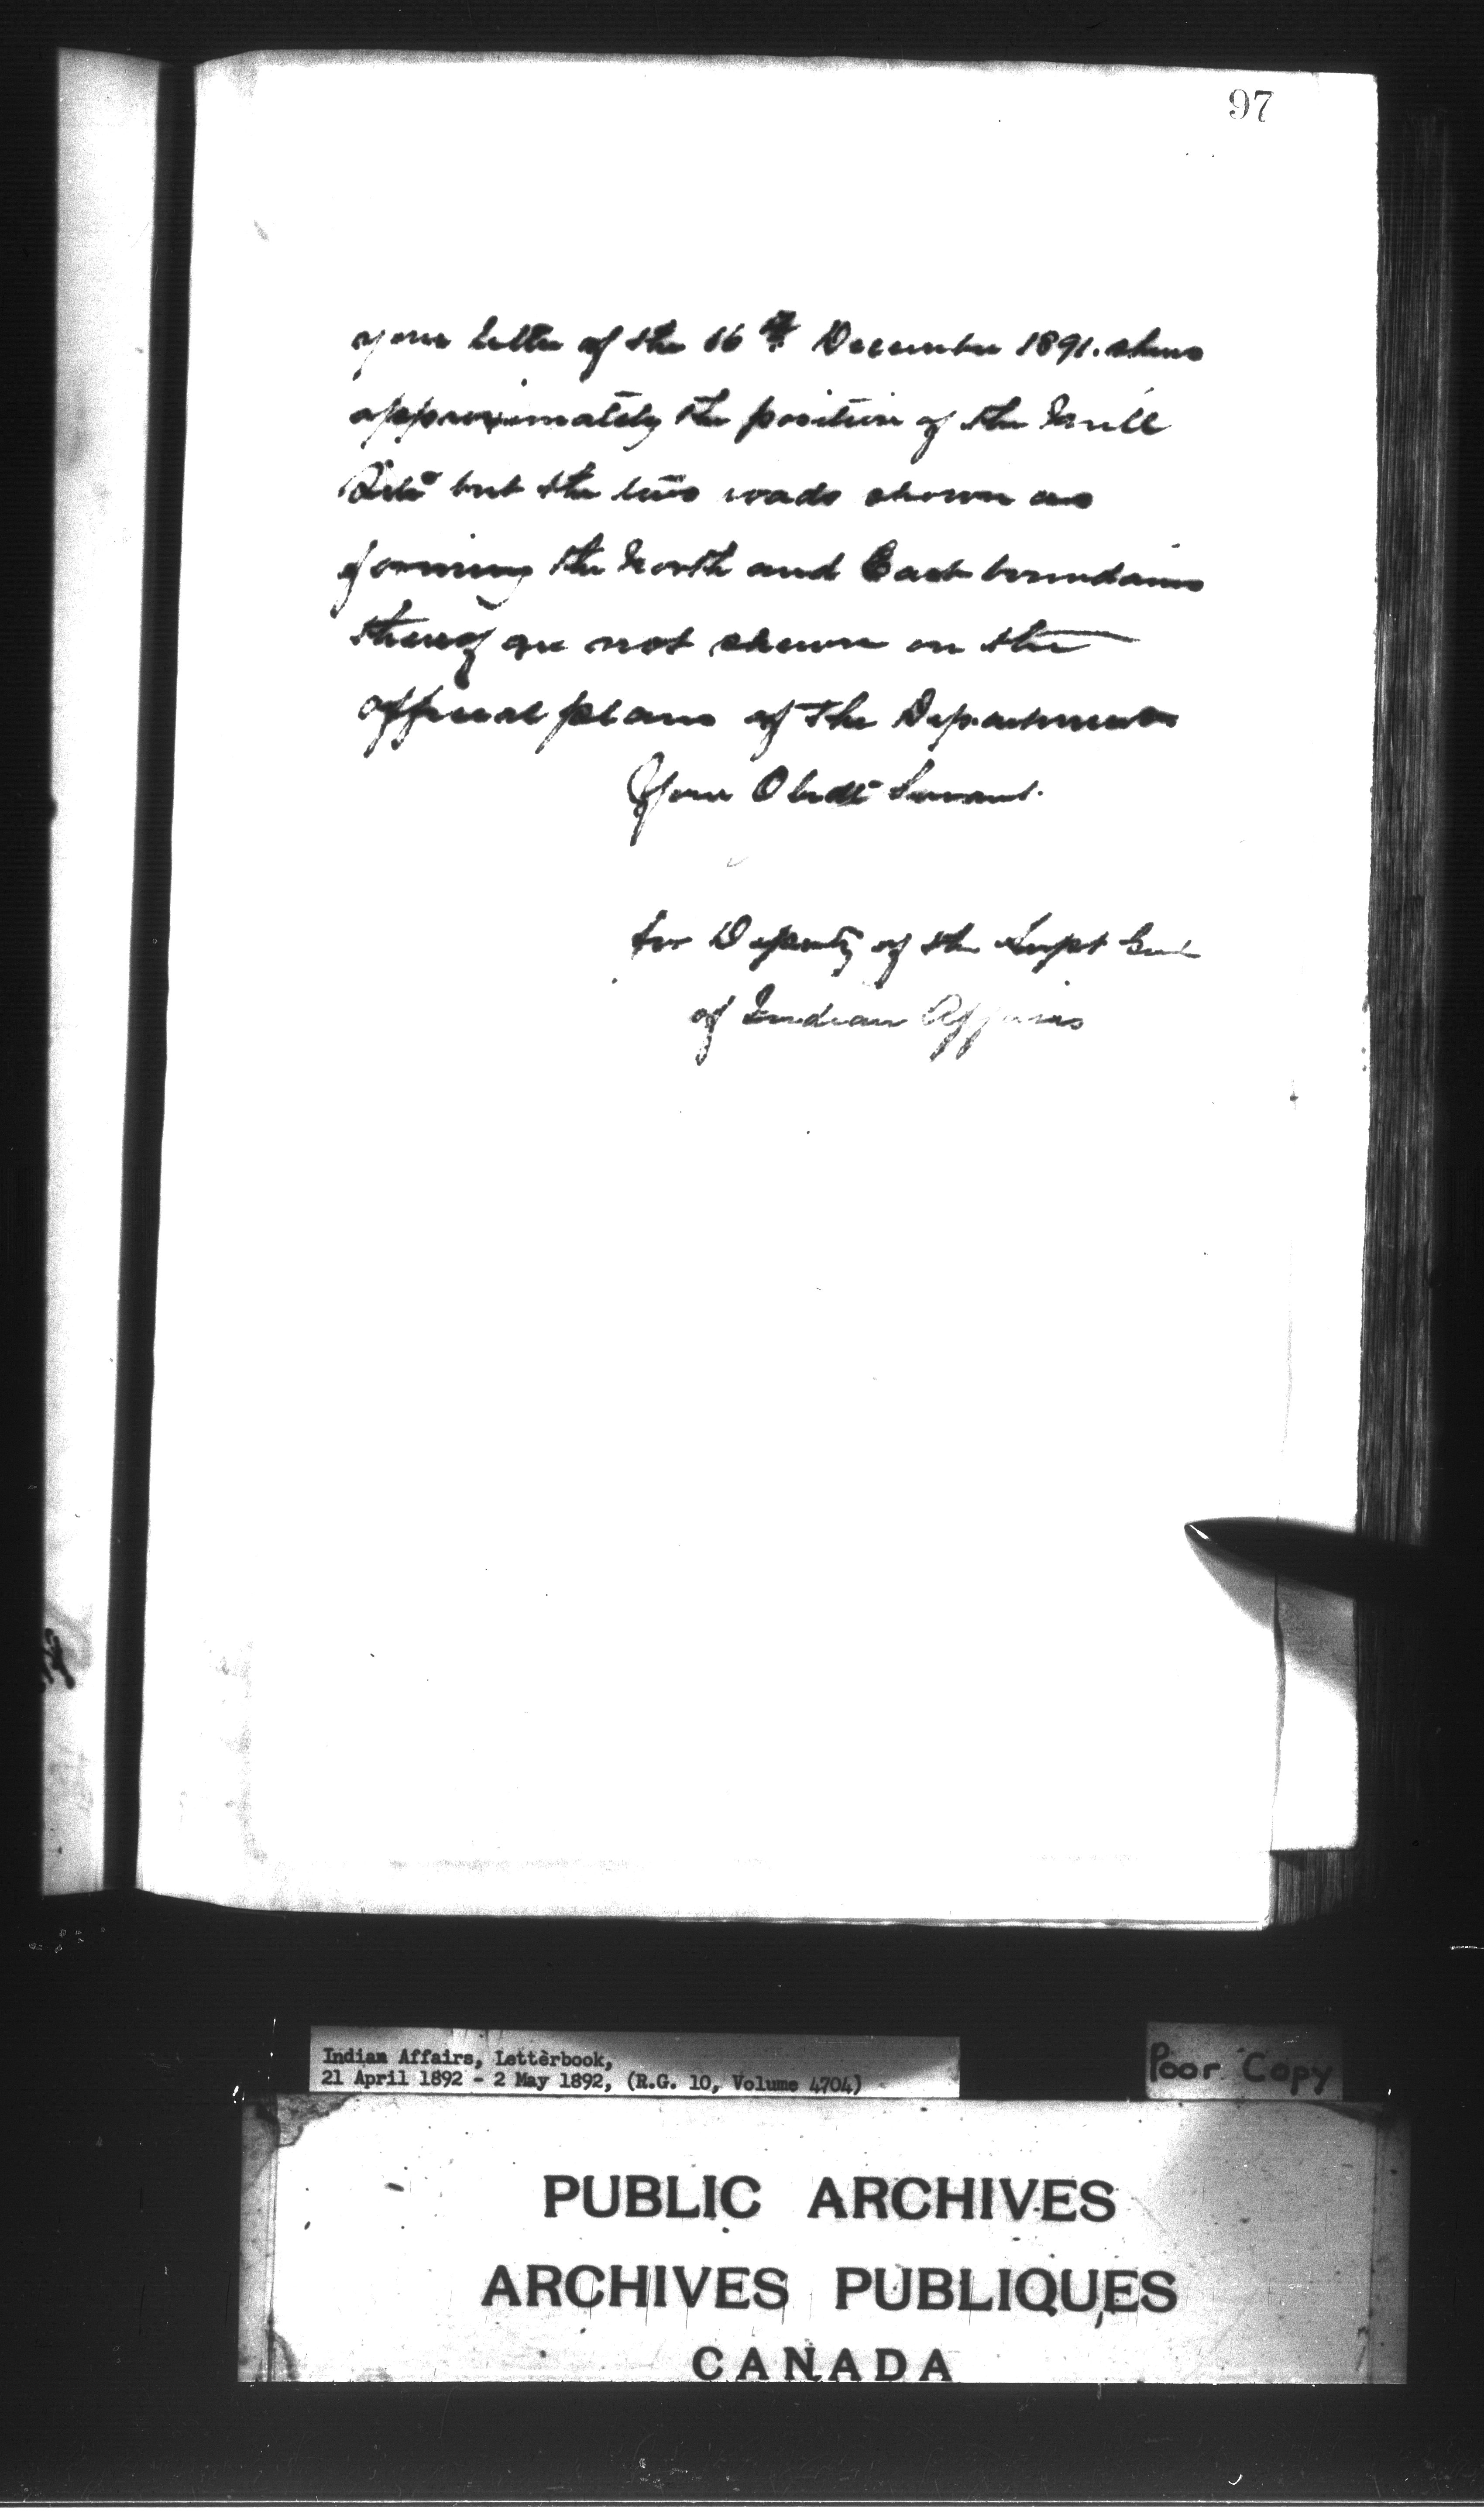 97
your letter of the 16th December 1891. shews
approximately the position of the Mill
Site but the two roads shown as
forming the North and East boundaries
thereof are not shewn on the
official plans of the Department
Your Obedt Servant.
for Deputy of the Supt Genl
of Indian Affairs
Indian Affairs, Letterbook,
21 April 1892 - 2 May 1892, (R.G. 10, Volume 4704)
Poor Copy
PUBLIC ARCHIVES
ARCHIVES PUBLIQUES
CANADA